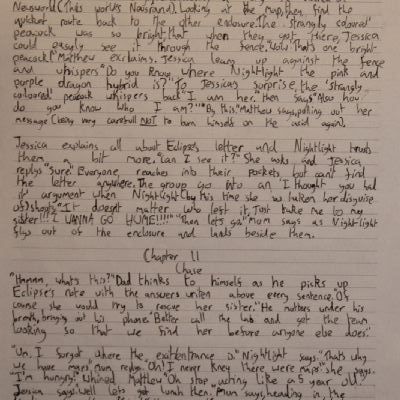 Newsworld (This world's Naisrand). Looking at the map, they find the
quickest route back to the other enclosure. The strangly coloured
peacock was so bright that when they got there, Jessica
could easily see it through the fence. "Wow. That's one bright
peacock!" Matthew explains. Jessica leans up against the fence
and whispers "Do you know where Nightlight the pink and
purple dragon hybrid is?" To Jessicas surprise, the strangly
coloured peacock whispers back "I am her. then says "Also how
do you know who I am?" "By this," Matthew says, pulling out her
message (being very carefull NOT to burn himself on the acid again).
Jessica explains all about Eclipse's letter and Nightlight trusts
them a bit more. "Can I see it?" She asks and Jessica
replys "Sure". Everyone reaches into their pockets but cant find
the letter anywhere. The group go into an "I thought you had
it" argument when Nightlight (by this time she us taken her disguise
off) shouts "It doesn't matter who left it, Just take me to my
sister!!! I WANNA GO HOME!!!!" "Then lets go" Mum says as Nightlight
flys out of the enclosure and lands beside them.
Chapter 11
Chase
"Hmmm, whats this?" Dad thinks to himself as he picks up
Eclipse's note with the answers writen above every sentence. "Of
course she would try to rescue her sister." He mutters under his
breath, bringing out his phone. "Better call the lab and get the team
looking so that we find her before anyone else does."
"Um, I forgot where the exit/entrance is" Nightlight says. "That's why
we have maps" mum replys. "Oh! I never knew there were maps" she says.
"I'm hungry." Whined Matthew. "Oh stop acting like a 5 year old"
Jessica says. "Well lets get lunch then." Mum says, heading in the